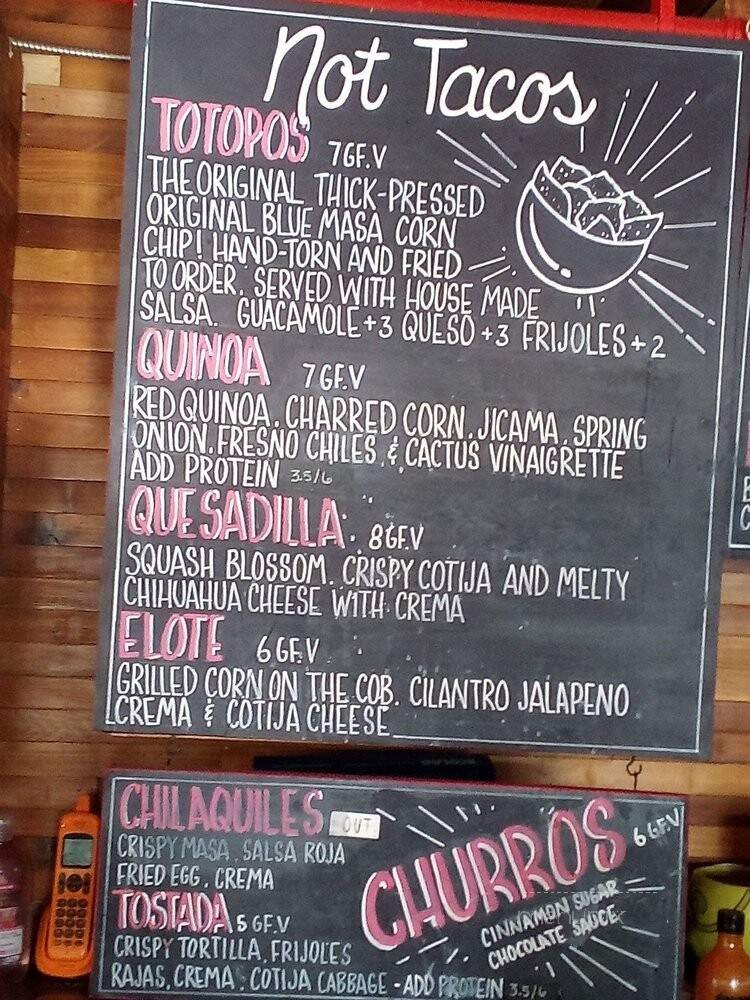 Not Tacos
TOTOPOS 7 GF.V
THE ORIGINAL THICK-PRESSED
ORIGINAL BLUE MASA CORN
CHIP! HAND-TORN AND FRIED
TO ORDER. SERVED WITH HOUSE MADE
SALSA. GUACAMOLE +3 QUESO +3 FRIJOLES +2
QUINOA 7 GF.V
RED QUINOA. CHARRED CORN. JICAMA. SPRING
ONION. FRESNO CHILES. & CACTUS VINAIGRETTE
ADD PROTEIN 3.5/6
QUESADILLA. 8 GF.V
SQUASH BLOSSOM. CRISPY COTIJA AND MELTY
CHIHUAHUA CHEESE WITH CREMA
ELOTE 6 GF.V
GRILLED CORN ON THE COB. CILANTRO JALAPENO
CREMA & COTIJA CHEESE
CHILAQUILES OUT
CRISPY MASA. SALSA ROJA
FRIED EGG. CREMA
TOSTADA 5 GF.V
CRISPY TORTILLA. FRIJOLES
RAJAS. CREMA. COTIJA CABBAGE - ADD PROTEIN 3.5/6
CHURROS 6 GF.V
CINNAMON SUGAR
CHOCOLATE SAUCE